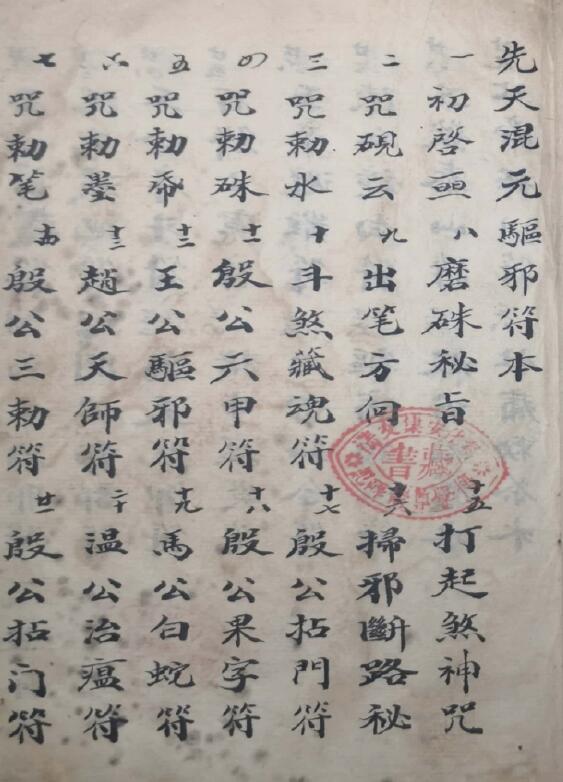 先天混元驅邪符本
一初啓亟 八磨硃秘旨 十五打起煞神咒
二咒硯云 九出笔方向 十六掃邪斷路秘
三咒勅水 十斗煞藏魂符 十七殷公拈門符
四咒勅硃 十一殷公六甲符 十八殷公果字符
五咒勅帋 十二王公驅邪符 十九馬公白蛇符
六咒勅墨 十三趙公天師符 二十温公治瘟符
七咒勅笔 十四殷公三勅符 廿一殷公拈门符
藏書